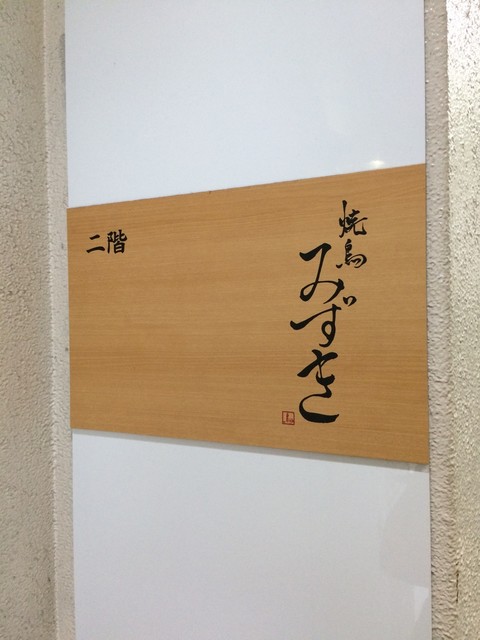 焼鳥
みずき
二階